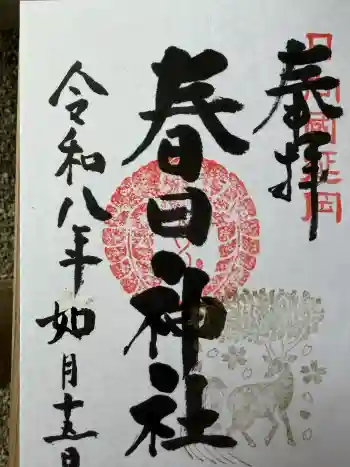 奉拝
春日神社
令和八年如月十五日